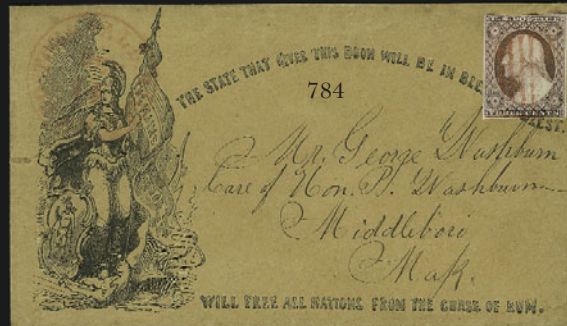 THE STATE THAT GIVES THIS BOON WILL BE IN BLE
BLEST.
784
THREE CENTS
Mr. George Washburn
Care of Hon. P. Washburn
Middleboro
Mass.
WILL FREE ALL NATIONS FROM THE CURSE OF RUM.